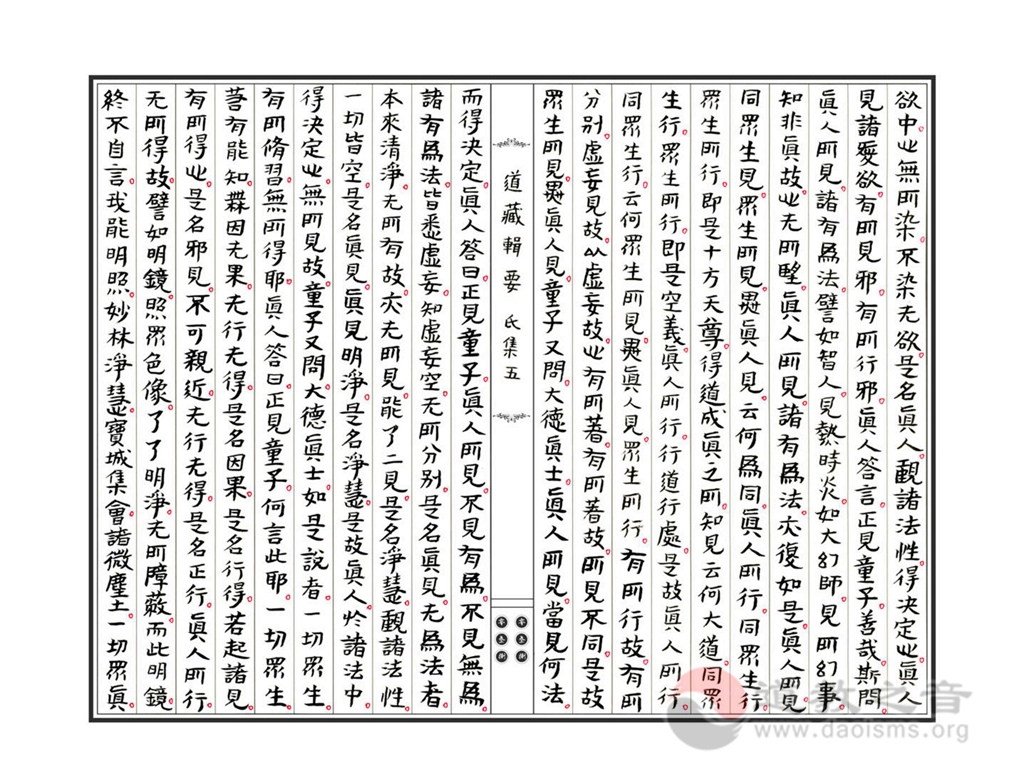 欲中也無所染不染无欲是名眞人觀諸法性得決定也眞人
見諸愛欲有所見邪有所行邪眞人答言正見童子善哉斯問
眞人所見諸有爲法譬如智人見熱時炎如大幻師見所幻事
知非眞故也无所堅眞人所見諸有爲法亦復如是眞人所見
同眾生見眾生所見異眞人見云何爲同眞人所行同眾生行
眾生所行即是十方天尊得道成眞之所知見云何大道同眾
生行眾生所行即是空義眞人所行行道行處是故眞人所行
同眾生行云何眾生所見異眞人見眾生所行有所行故有所
分别虛妄見故以虛妄故也有所著有所著故所見不同是故
眾生所見異眞人見童子又問大德眞士眞人所見當見何法
道藏輯要 氐集五
而得決定眞人答曰正見童子眞人所見不見有爲不見無爲
諸有爲法皆悉虛妄知虛妄空无所分别是名眞見无爲法者
本來清淨无所有故亦无所見能了二見是名淨慧觀諸法性
一切皆空是名眞見眞見明淨是名淨慧是故眞人於諸法中
得決定也無所見故童子又問大德眞士如是說者一切眾生
有所脩習無所得耶眞人答曰正見童子何言此耶一切眾生
若有能知無因无果无行无得是名因果是名行得若起諸見
有所得也是名邪見不可親近无行无得是名正行眞人所行
无所得故譬如明鏡照眾色像了了明淨无所障蔽而此明鏡
終不自言我能明照妙林淨慧寳城集會諸微塵土一切眾眞
道教之音
www.daoisms.org